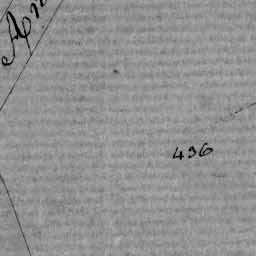 An
436